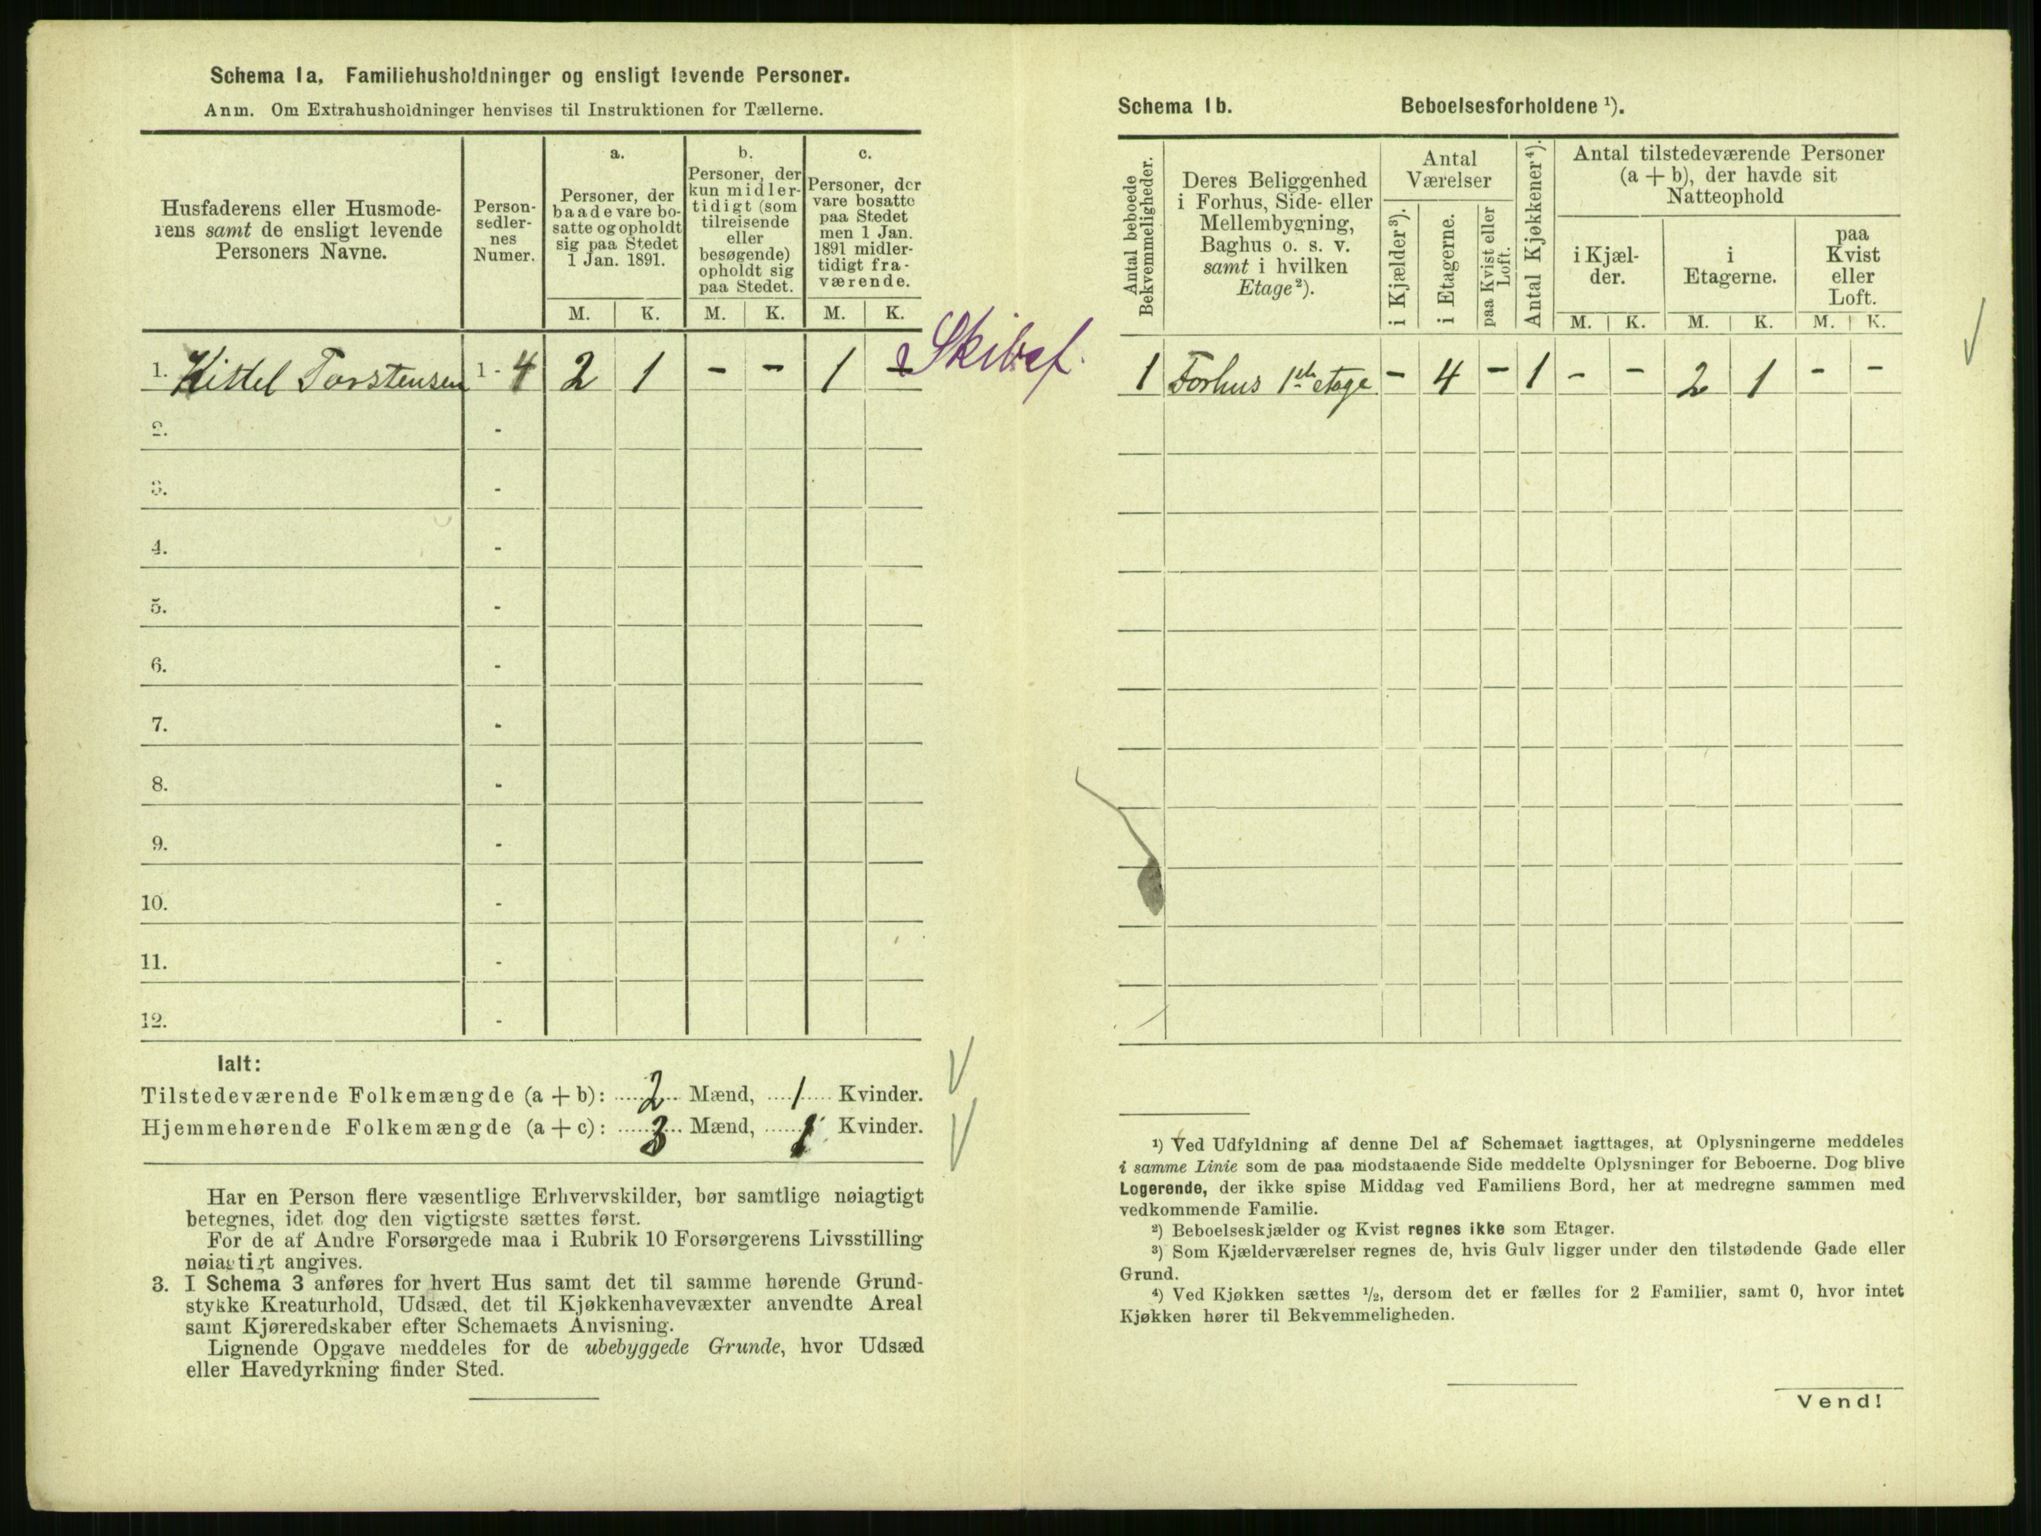 Schema 1a. Familiehusholdninger og ensligt levende Personer.
Anm. Om Extrahusholdninger henvises til Instruktionen for Tællerne.
Husfaderens eller Husmode-
rens samt de ensligt levende
Personers Navne.
Person-
sedler-
nes
Numer.
a.
Personer, der
baade vare bo-
satte og opholdt
sig paa Stedet
1 Jan. 1891.
b.
Personer, der
kun midler-
tidigt (som
tilreisende
eller
besøgende)
opholdt sig
paa Stedet.
c.
Personer, der
vare bosatte
paa Stedet
men 1 Jan.
1891 midler-
tidigt fra-
værende.
M. K. M. K. M. K.
1. Kittel Torstensen 1 - 4 2 1 - - 1 -
2. -
3. -
4. -
5. -
6. -
7. -
8. -
9. -
10. -
11. -
12. -
Ialt:
Tilstedeværende Folkemængde (a + b): 2 Mænd, 1 Kvinder.
Hjemmehørende Folkemængde (a + c): 3 Mænd, 1 Kvinder.
Har en Person flere væsentlige Erhvervskilder, bør samtlige nøiagtigt
betegnes, idet dog den vigtigste sættes først.
For de af Andre Forsørgede maa i Rubrik 10 Forsørgerens Livsstilling
nøiagtigt angives.
3. I Schema 3 anføres for hvert Hus samt det til samme hørende Grund-
stykke Kreaturhold, Udsæd, det til Kjøkkenhavevæxter anvendte Areal
samt Kjøreredskaber efter Schemaets Anvisning.
Lignende Opgave meddeles for de ubebyggede Grunde, hvor Udsæd
eller Havedyrkning finder Sted.
Schema 1b. Beboelsesforholdene ¹).
Antal beboede
Bekvemmeligheder.
Deres Beliggenhed
i Forhus, Side- eller
Mellembygning,
Baghus o. s. v.
samt i hvilken
Etage²).
Antal
Værelser
i Kjælder³).
i Etagerne.
paa Kvist eller
Loft.
Antal Kjøkkener⁴).
Antal tilstedeværende Personer
(a + b), der havde sit
Natteophold
i Kjæl-
der.
i
Etagerne.
paa
Kvist
eller
Loft.
M. K. M. K. M. K.
1 Forhus 1ste etage - 4 - 1 - - 2 1 - -
¹) Ved Udfyldning af denne Del af Schemaet iagttages, at Oplysningerne meddeles
i samme Linie som de paa modstaaende Side meddelte Oplysninger for Beboerne. Dog blive
Logerende, der ikke spise Middag ved Familiens Bord, her at medregne sammen med
vedkommende Familie.
²) Beboelseskjælder og Kvist regnes ikke som Etager.
³) Som Kjælderværelser regnes de, hvis Gulv ligger under den tilstødende Gade eller
Grund.
⁴) Ved Kjøkken sættes ½, dersom det er fælles for 2 Familier, samt 0, hvor intet
Kjøkken hører til Bekvemmeligheden.
Vend!